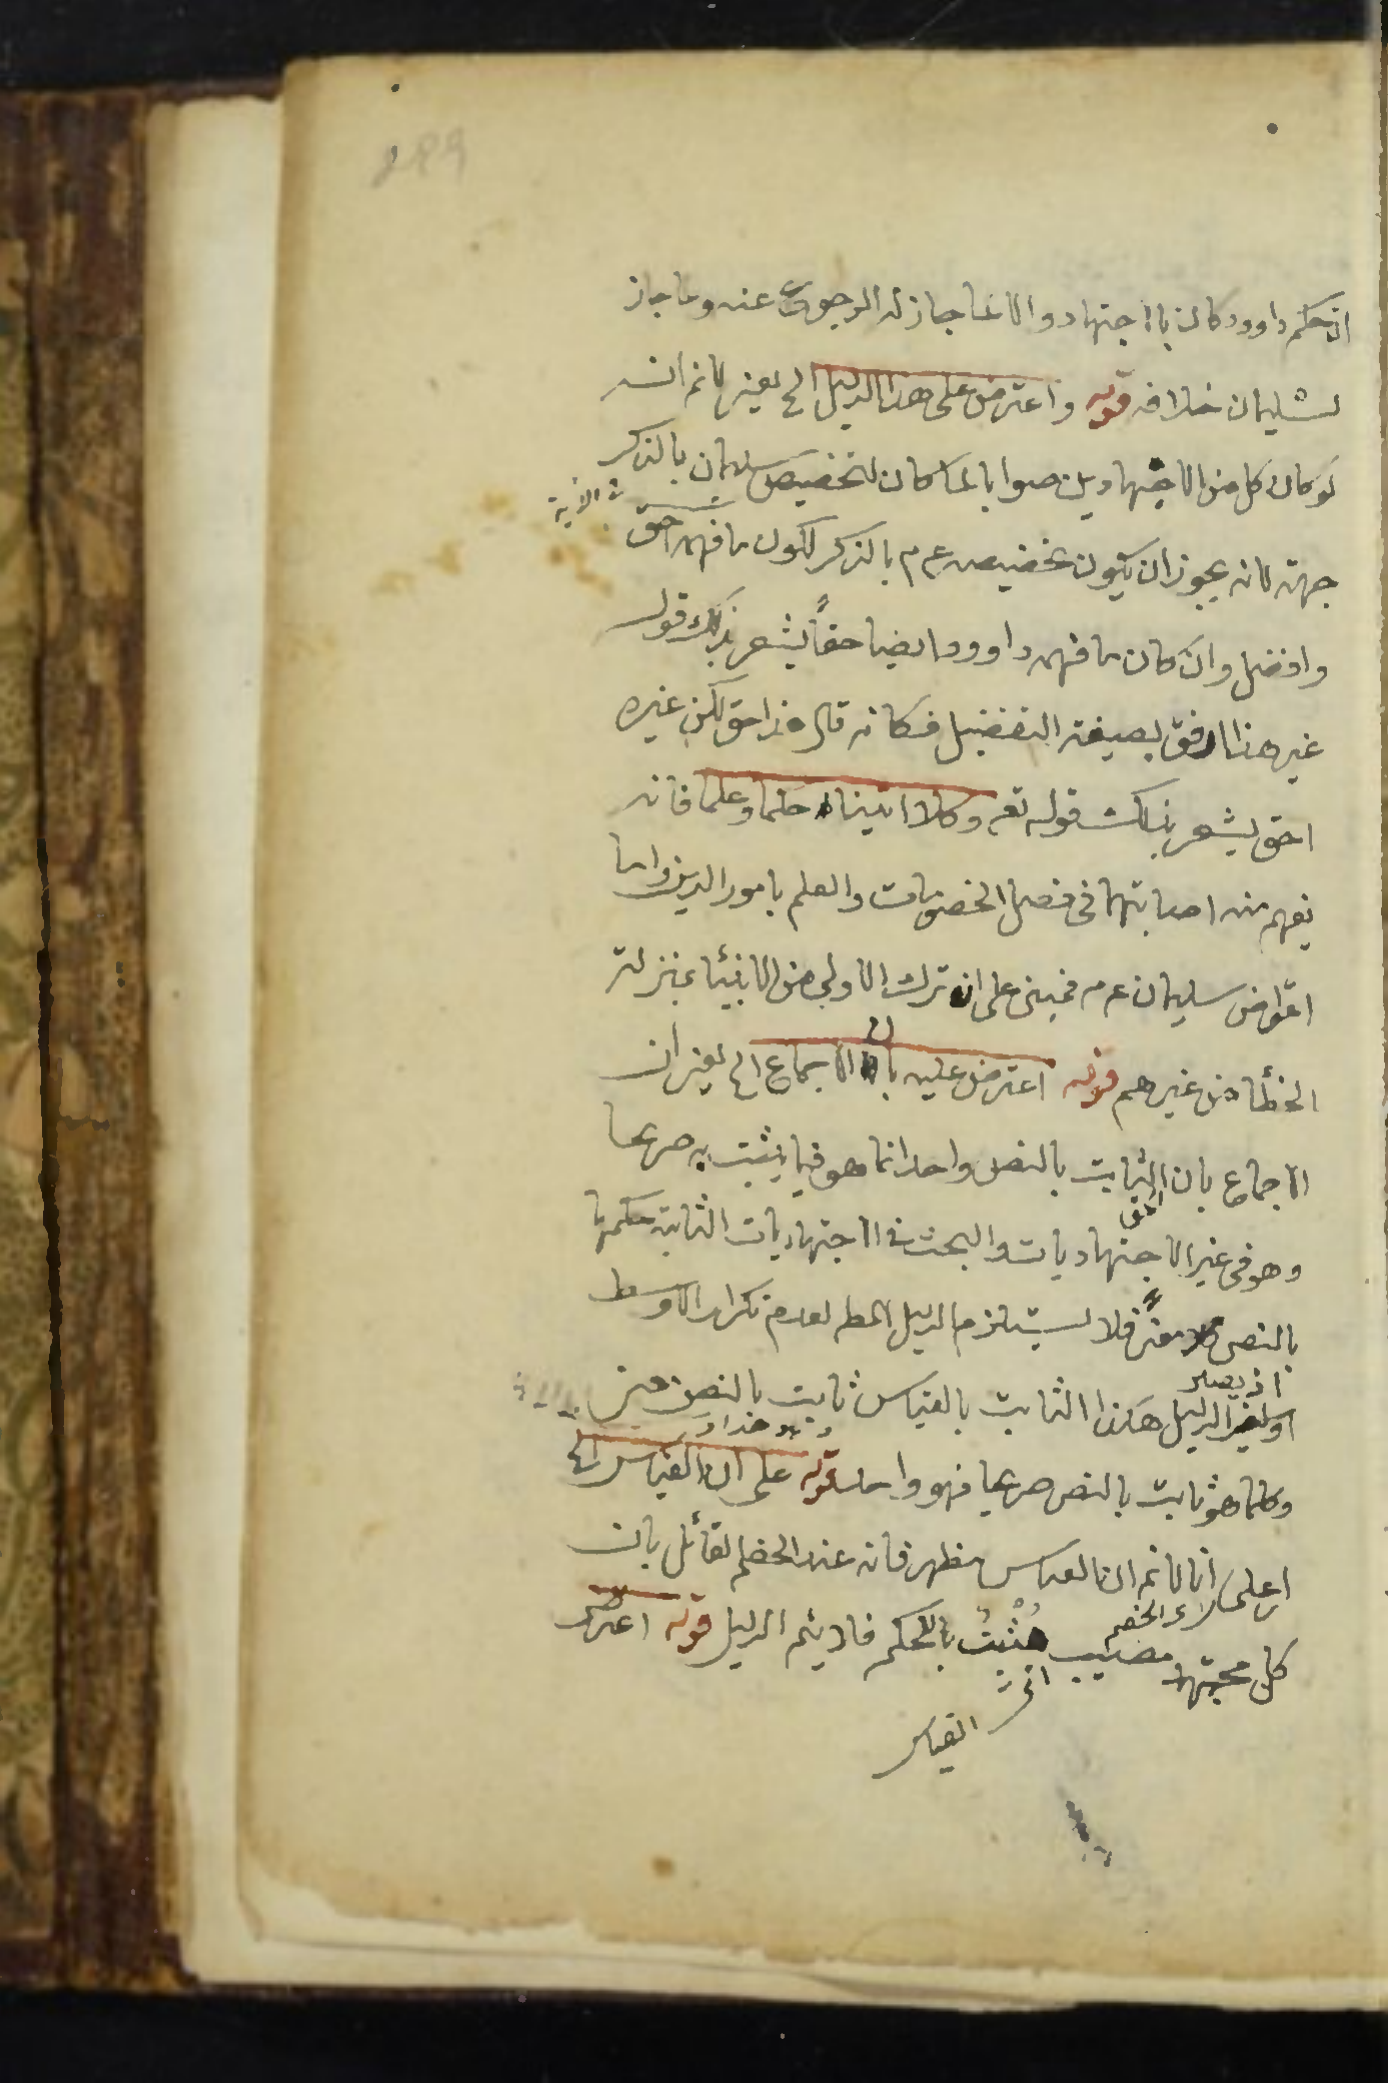 ان حكم داوود كان بالاجتهاد والا لما جاز له الرجوع عنه وما جاز
لسليمان خلافه قوله واعترض على هذا الدليل الخ يعني لانم انه
لو كان كل من الاجتهادين صوابا لما كان لتخصيص سليمان بالذكر
في الآية
جهة لانه يجوز ان يكون تخصيصه عم بالذكر لكون ما فهمه احق
وافضل وان كان ما فهمه داوود ايضا حقاً يشعر بذلك قوله
غير هذا ارفق بصيغة التفضيل فكانه قال هذا حق لكن غيره
احق يشعر بذلك قوله تعم وكلا اتينا حكما وعلما فانه
يفهم منه اصابتهما في فصل الخصومات والعلم بامور الدين واما
اعتراض سليمان عم فمبني على ان ترك الاولى من الانبياء بمنزلة
الخطاء من غيرهم قوله اعترض عليه بان الاجماع الخ يعني ان
الاجماع بان الثابت بالنص واحد انما هو فيما يثبت به صريحا
وهو في غير الاجتهاديات والبحث في الاجتهاديات الثابتة حكمها
بالنص معنىً فلا يستلزم الدليل المط لعدم تكرار الاوسط
اذ يصير
الدليل هكذا الثابت بالقياس ثابت بالنص معنى
وكلما هو ثابت بالنص صريحا فهو واحد قوله على ان القياس الخ
اي على انا لانم ان القياس مظهر فانه عند الخصم القائل بان
كل مجتهد مصيب مُثْبِتٌ بالحكم فلا يتم الدليل قوله اعترض
القياس
289